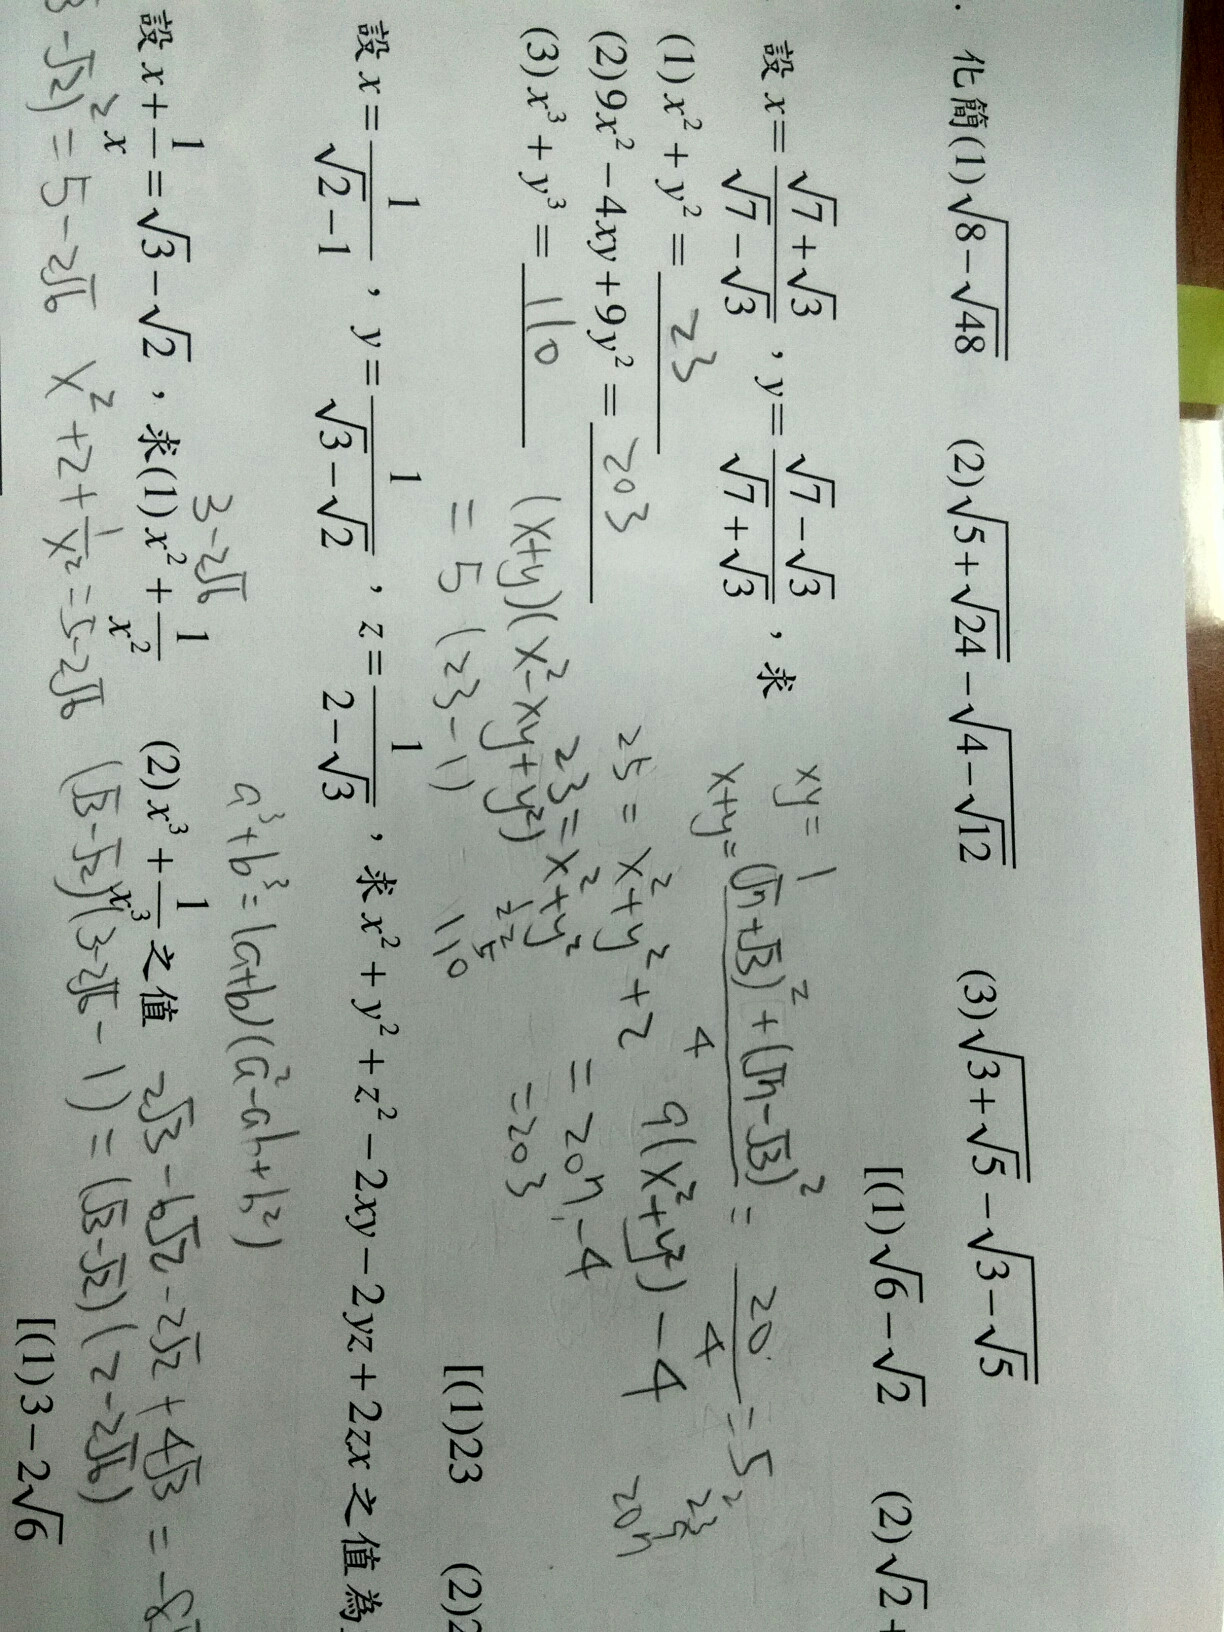 化簡(1)√(8-√48) (2)√(5+√24)-√(4-√12) (3)√(3+√5)-√(3-√5)
[(1)√6-√2 (2)√2+
設x=(√7+√3)/(√7-√3)，y=(√7-√3)/(√7+√3)，求
xy=1
x+y=((√7+√3)²+(√7-√3)²)/4=20/4=5
(1)x²+y²=23
(2)9x²-4xy+9y²=203
25=x²+y²+2
23=x²+y²
9(x²+y²)-4
=207-4
=203
23
207
(3)x³+y³=110
(x+y)(x²-xy+y²)
=5(23-1)
22
5
110
[(1)23 (2)2
設x=1/(√2-1)，y=1/(√3-√2)，z=1/(2-√3)，求x²+y²+z²-2xy-2yz+2zx之值為
a³+b³=(a+b)(a²-ab+b²)
3-2√6
設x+1/x=√3-√2，求(1)x²+1/x² (2)x³+1/x³之值
2√3-6√2-2√2+4√3=
3-√2)²=5-2√6
x²+2+1/x²=5-2√6
(√3-√2)(3-2√6-1)=(√3-√2)(2-2√6)
[(1)3-2√6